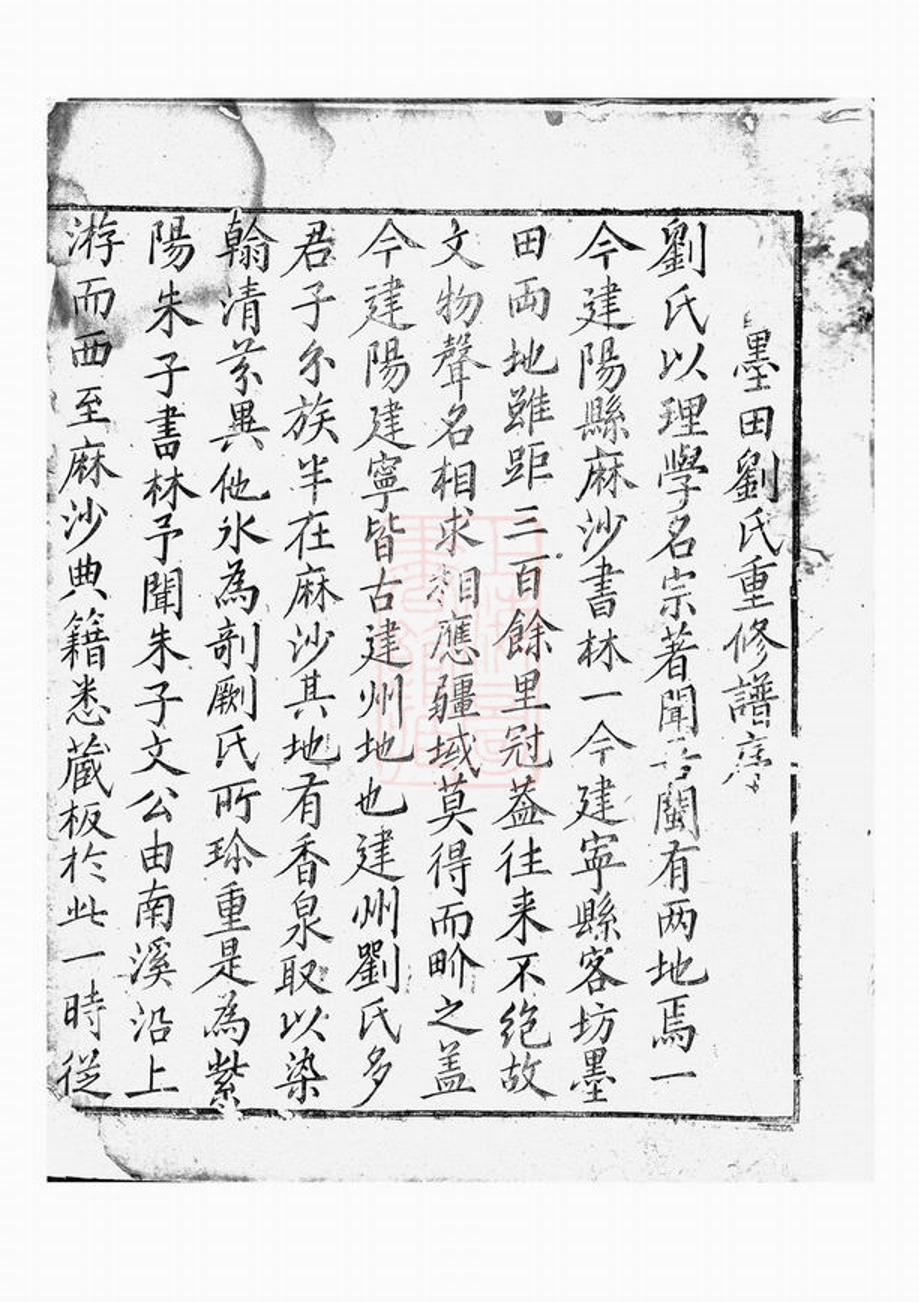 墨田劉氏重修譜序
劉氏以理學名宗著聞于閩有两地焉一
今建陽縣麻沙書林一今建寧縣客坊墨
田両地雖距三百餘里冠葢往来不绝故
文物聲名相求相應疆域莫得而畍之盖
今建陽建寧皆古建州地也建州劉氏多
君子尓族半在麻沙其地有香泉取以染
翰清芬異他水為剞劂氏所珎重是為紫
陽朱子書林予聞朱子文公由南溪沿上
游而西至麻沙典籍悉蔵板於此一時從